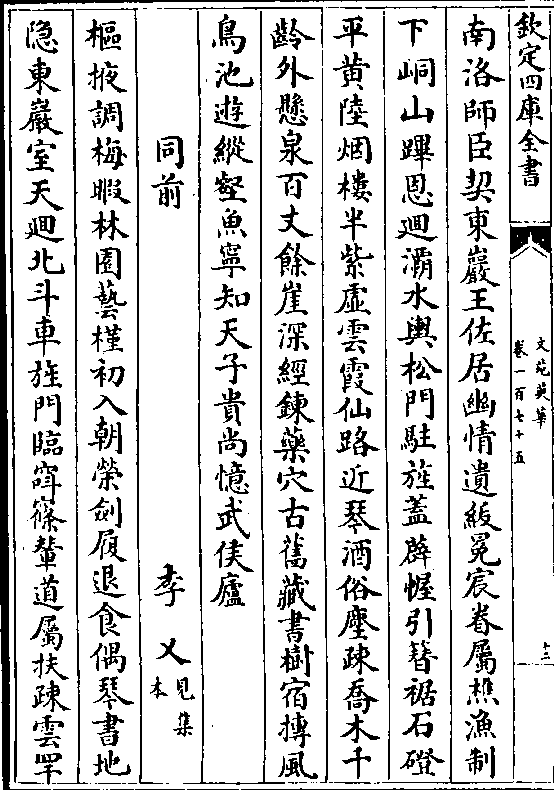 欽定四庫全書
文苑英華
卷一百七十五
十三
南洛師臣契東巖王佐居幽情遺紱冕宸眷屬樵漁制
下峒山蹕恩廻灞水輿松門駐旌蓋薜幄引簪裾石磴
平黄陸烟樓半紫虛雲霞仙路近琴酒俗塵疎喬木千
齡外懸泉百丈餘崖深經鍊藥穴古舊藏書樹宿摶風
鳥池遊縱壑魚寧知天子貴尚憶武侯廬
同前 李乂 見集本
樞掖調梅暇林園藝槿初入朝榮劍履退食偶琴書地
隐東巖室天廻北斗車旌門臨窅篠輦道屬扶疎雲罕